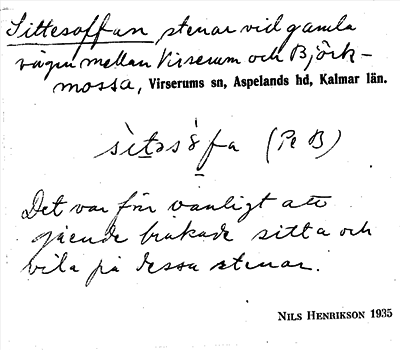 Sittesoffan stenar vid gamla
vägen mellan Virserum och Björk-
mossa, Virserums sn, Aspelands hd, Kalmar län.
sìtəsòfa (Pe B)
Det var förr vanligt att
gående brukade sitta och
vila på dessa stenar.
NILS HENRIKSON 1935